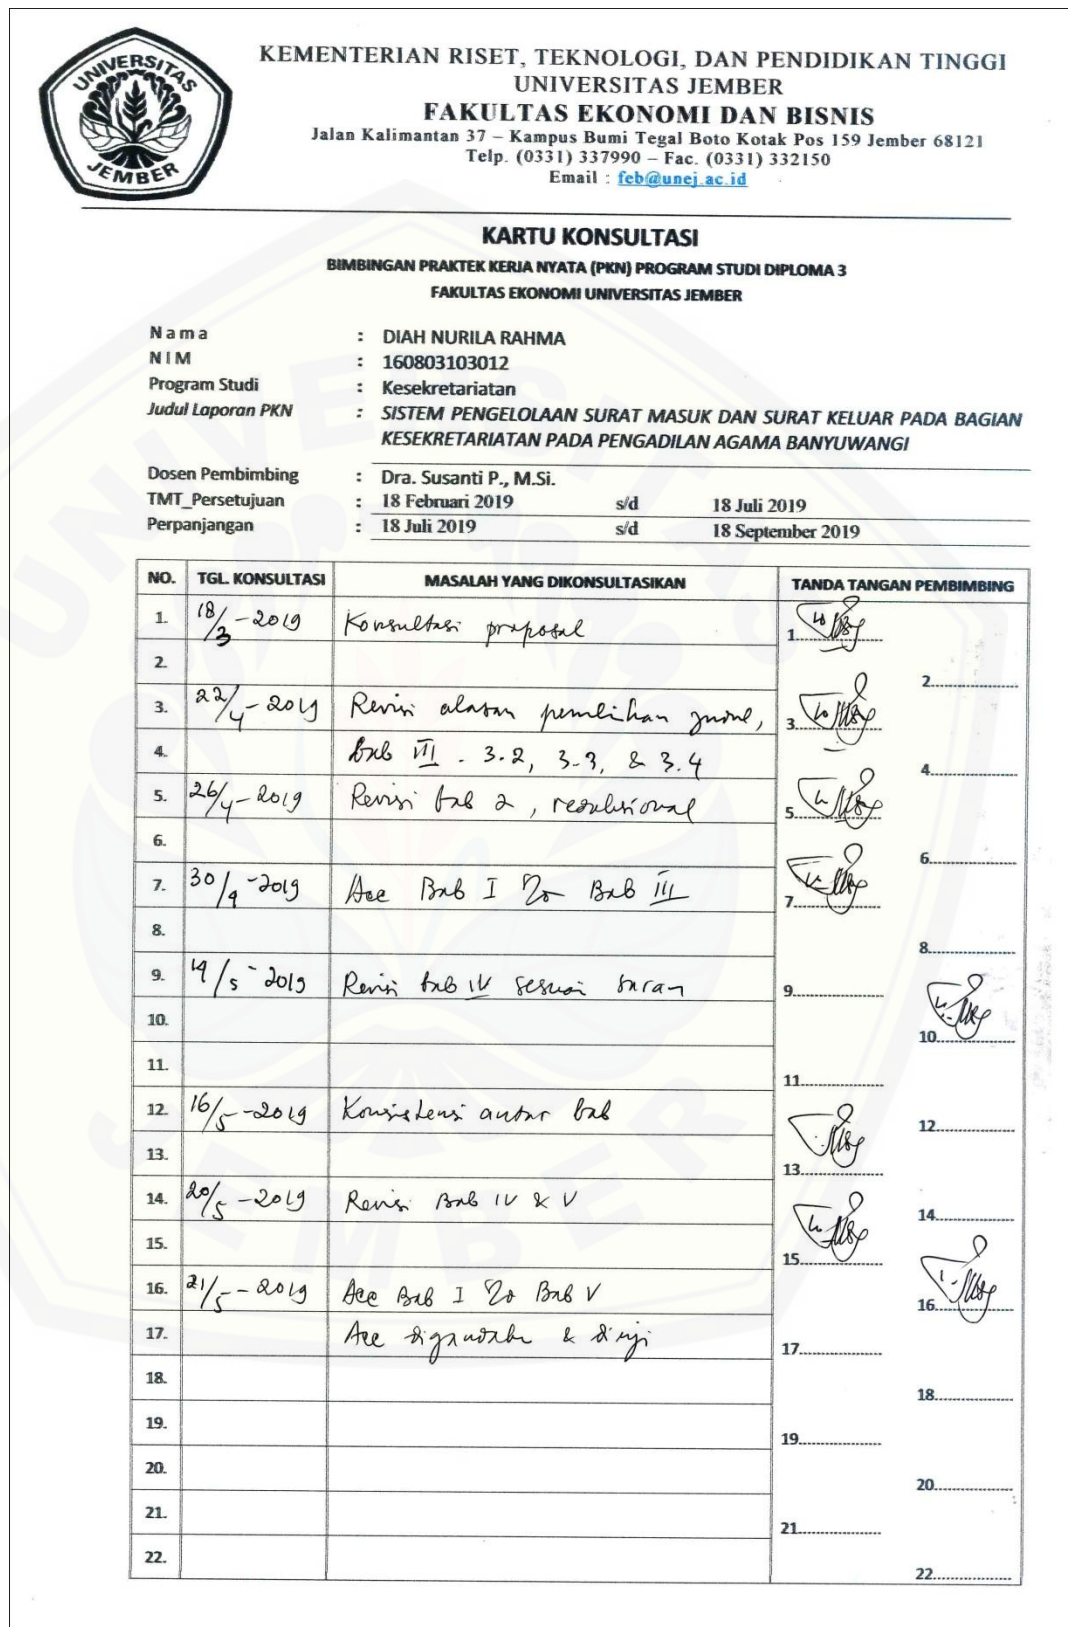 UNIVERSITAS
JEMBER
KEMENTERIAN RISET, TEKNOLOGI, DAN PENDIDIKAN TINGGI
UNIVERSITAS JEMBER
FAKULTAS EKONOMI DAN BISNIS
Jalan Kalimantan 37 – Kampus Bumi Tegal Boto Kotak Pos 159 Jember 68121
Telp. (0331) 337990 – Fac. (0331) 332150
Email : feb@unej.ac.id
KARTU KONSULTASI
BIMBINGAN PRAKTEK KERJA NYATA (PKN) PROGRAM STUDI DIPLOMA 3
FAKULTAS EKONOMI UNIVERSITAS JEMBER
Nama : DIAH NURILA RAHMA
NIM : 160803103012
Program Studi : Kesekretariatan
Judul Laporan PKN : SISTEM PENGELOLAAN SURAT MASUK DAN SURAT KELUAR PADA BAGIAN
KESEKRETARIATAN PADA PENGADILAN AGAMA BANYUWANGI
Dosen Pembimbing : Dra. Susanti P., M.Si.
TMT_Persetujuan : 18 Februari 2019 s/d 18 Juli 2019
Perpanjangan : 18 Juli 2019 s/d 18 September 2019
NO. TGL. KONSULTASI MASALAH YANG DIKONSULTASIKAN TANDA TANGAN PEMBIMBING
1. 18/3-2019 Konsultasi proposal 1
2. 2
3. 22/4-2019 Revisi alasan pemilihan judul, 3
4. bab III. 3.2, 3.3, & 3.4 4
5. 26/4-2019 Revisi bab 2, redaksional 5
6. 6
7. 30/4-2019 Acc Bab I Bab III 7
8. 8
9. 14/5-2019 Revisi bab IV sesuai saran 9
10. 10
11. 11
12. 16/5-2019 Konsistensi antar bab 12
13. 13
14. 20/5-2019 Revisi Bab IV & V 14
15. 15
16. 21/5-2019 Acc Bab I Bab V 16
17. Acc digandakan & diuji 17
18. 18
19. 19
20. 20
21. 21
22. 22